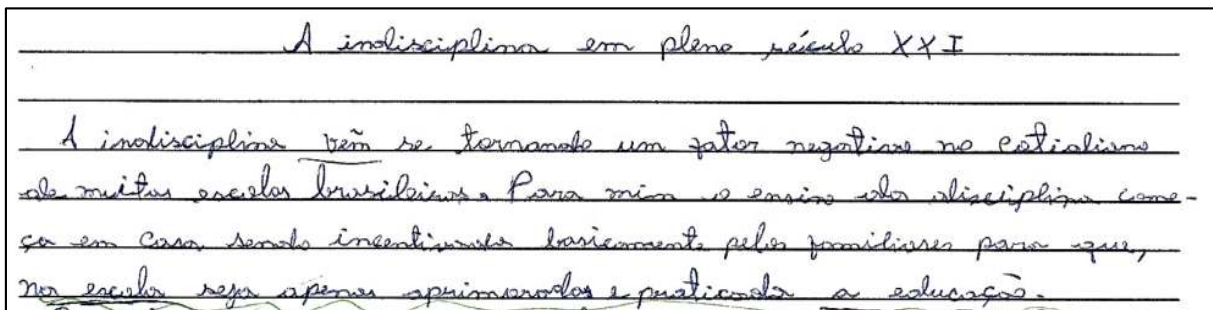 A indisciplina em pleno século XXI
A indisciplina vẽm se tornando um fator negativo no cotidiano
de muitas escolas brasileiras. Para mim o ensino da disciplina come-
ça em casa sendo incentivada basicamente pelos familiares para que,
na escola seja apenas aprimorada e praticada a educação.